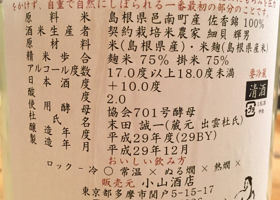 をかけず、自重で自然にしぼられる一番最初の部分のことです。
原料米 島根県邑南町産 佐香錦 100%
酒米生産者 契約栽培米農家 細貝 輝男
原材料 米(島根県産)・米麹(島根県産米)
精米歩合 麹米 75% 掛米 75%
アルコール度数 17.0度以上18.0度未満
日本酒度 +10.0
酸度 2.0
使用酵母 協会701号酵母
杜氏 末田 誠一(蔵元 出雲杜氏)
醸造年度 平成29年度(29BY)
製造年月 平成29年12月
要冷蔵
清酒
おいしい飲み方
ロック - 冷○ 常温× ぬる燗× 熱燗×
販売元 小山酒店
東京都多摩市関戸5-15-17